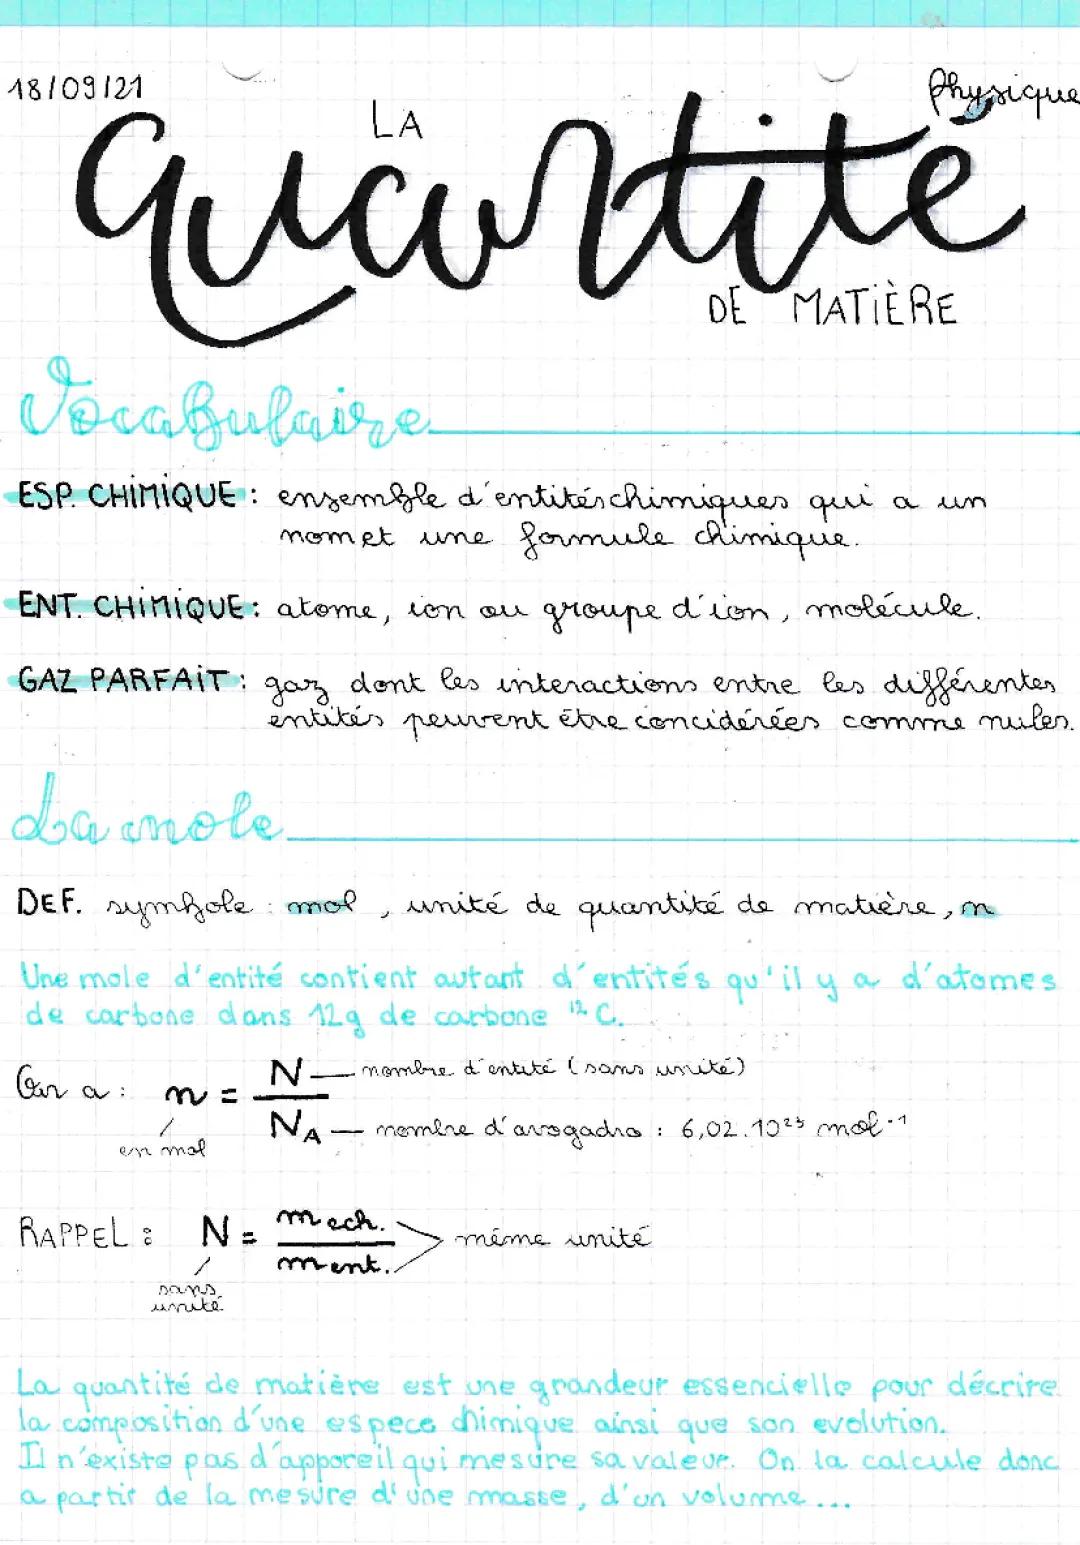 18/09/21
Physique
LA
quantité
DE MATIÈRE
Vocabulaire
ESP. CHIMIQUE : ensemble d'entités chimiques qui a un
nom et une formule chimique.
ENT. CHIMIQUE : atome, ion ou groupe d'ion, molécule.
GAZ PARFAIT : gaz dont les interactions entre les différentes
entités peuvent être concidérées comme nules.
La mole
DEF. symbole : mol, unité de quantité de matière, n
Une mole d'entité contient autant d'entités qu'il y a d'atomes
de carbone dans 12g de carbone ¹²C.
On a : n = N / N_A
N — nombre d'entité (sans unité)
N_A — nombre d'avogadro : 6,02.10²³ mol⁻¹
en mol
RAPPEL : N = mech. / ment. > même unité
sans
unité
La quantité de matière est une grandeur essencielle pour décrire
la composition d'une espece chimique ainsi que son evolution.
Il n'existe pas d'appareil qui mesure sa valeur. On la calcule donc
a partir de la mesure d'une masse, d'un volume...